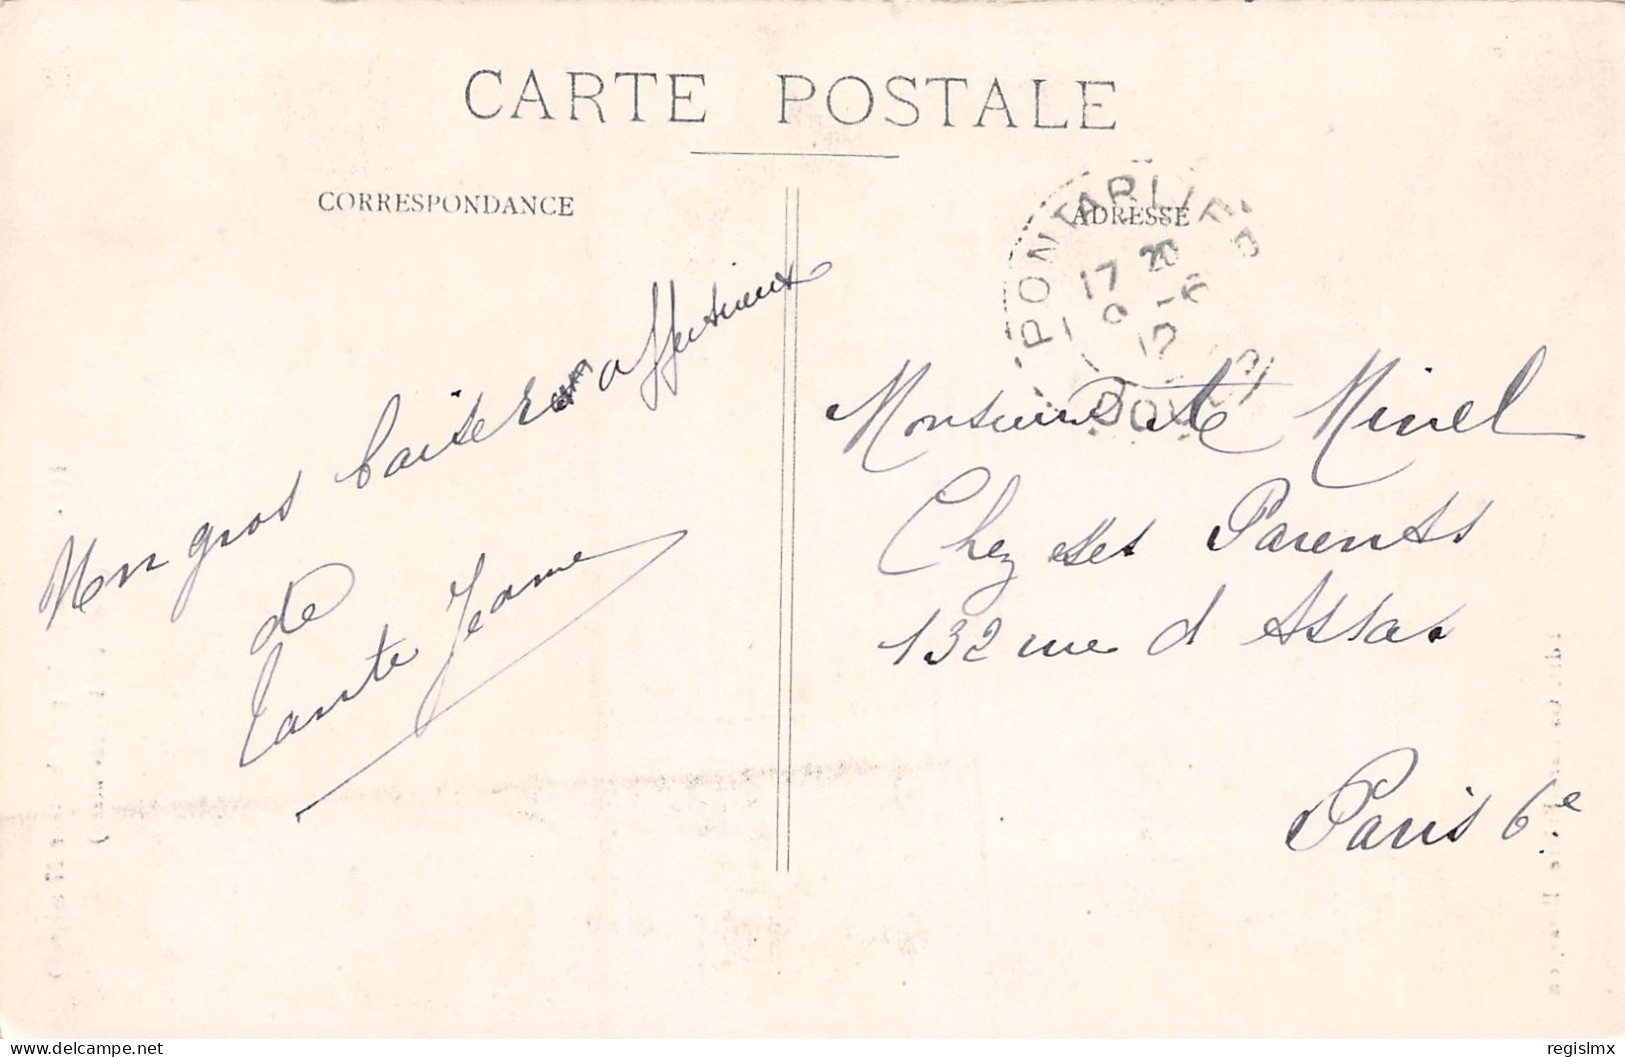 CARTE POSTALE
CORRESPONDANCE
ADRESSE
PONTARLIER
17 20
9 - 6
12
DOUBS
Mon gros baiser affectueux
de
Tante Jeanne
Monsieur
Chez ses Parents
132 rue d Assas
Paris 6e
www.delcampe.net
regislmx